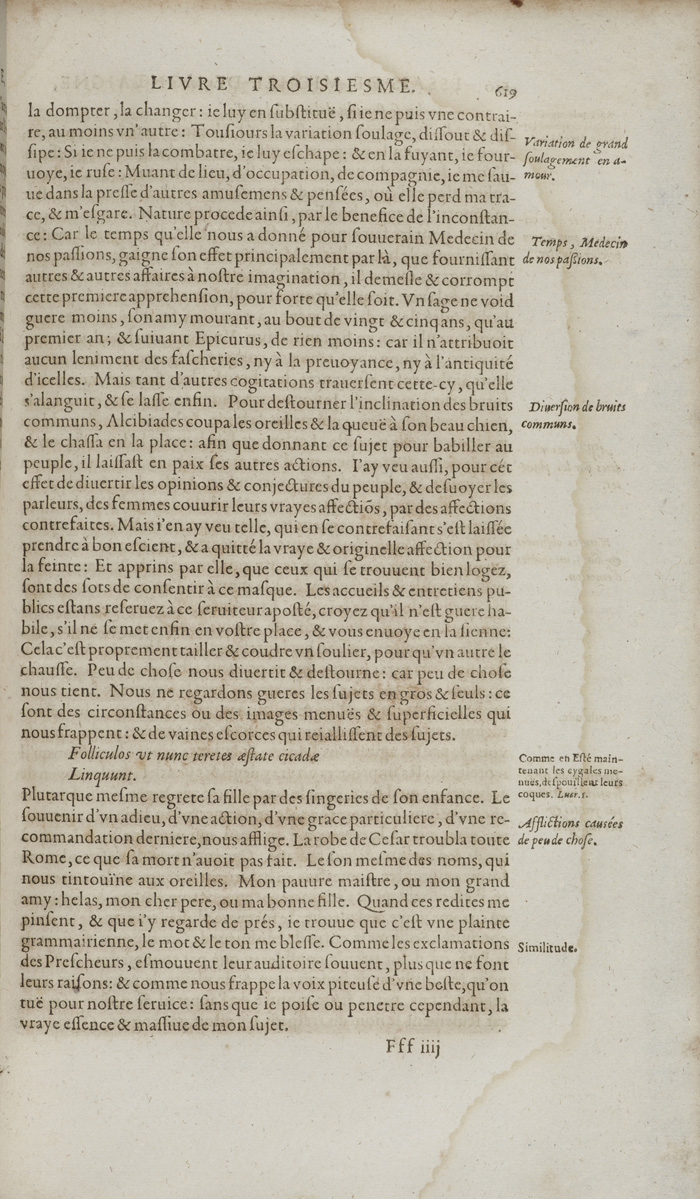 LIVRE TROISIESME. 619
la dompter, la changer: ie luy en ſubſtituë, ſi ie ne puis vne contrai-
re, au moins vn'autre: Touſiours la variation ſoulage, diſſout & diſ-
ſipe: Si ie ne puis la combatre, ie luy eſchape: & en la fuyant, ie four-
uoye, ie ruſe: Muant de lieu, d'occupation, de compagnie, ie me ſau-
ue dans la preſſe d'autres amuſemens & penſées, où elle perd ma tra-
ce, & m'eſgare. Nature procede ainſi, par le benefice de l'inconſtan-
ce: Car le temps qu'elle nous a donné pour ſouuerain Medecin de
nos paſſions, gaigne ſon effet principalement par là, que fourniſſant
autres & autres affaires à noſtre imagination, il demeſle & corrompt
cette premiere apprehenſion, pour forte qu'elle ſoit. Vn ſage ne void
guere moins, ſon amy mourant, au bout de vingt & cinq ans, qu'au
premier an; & ſuiuant Epicurus, de rien moins: car il n'attribuoit
aucun leniment des faſcheries, ny à la preuoyance, ny à l'antiquité
d'icelles. Mais tant d'autres cogitations trauerſent cette-cy, qu'elle
s'alanguit, & ſe laſſe enfin. Pour deſtourner l'inclination des bruits
communs, Alcibiades coupa les oreilles & la queuë à ſon beau chien,
& le chaſſa en la place: afin que donnant ce ſujet pour babiller au
peuple, il laiſſaſt en paix ſes autres actions. I'ay veu auſſi, pour cét
effet de diuertir les opinions & conjectures du peuple, & deſuoyer les
parleurs, des femmes couurir leurs vrayes affectiõs, par des affections
contrefaites. Mais i'en ay veu telle, qui en ſe contrefaiſant s'eſt laiſſée
prendre à bon eſcient, & a quitté la vraye & originelle affection pour
la feinte: Et apprins par elle, que ceux qui ſe trouuent bien logez,
ſont des ſots de conſentir à ce maſque. Les accueils & entretiens pu-
blics eſtans reſeruez à ce ſeruiteur apoſté, croyez qu'il n'eſt guere ha-
bile, s'il ne ſe met enfin en voſtre place, & vous enuoye en la ſienne:
Cela c'eſt proprement tailler & coudre vn ſoulier, pour qu'vn autre le
chauſſe. Peu de choſe nous diuertit & deſtourne: car peu de choſe
nous tient. Nous ne regardons gueres les ſujets en gros & ſeuls: ce
ſont des circonſtances ou des images menuës & ſuperficielles qui
nous frappent: & de vaines eſcorces qui reialliſſent des ſujets.
Folliculos vt nunc teretes æſtate cicadæ
Linquunt.
Plutarque meſme regrete ſa fille par des ſingeries de ſon enfance. Le
ſouuenir d'vn adieu, d'vne action, d'vne grace particuliere, d'vne re-
commandation derniere, nous afflige. La robe de Ceſar troubla toute
Rome, ce que ſa mort n'auoit pas fait. Le ſon meſme des noms, qui
nous tintouïne aux oreilles. Mon pauure maiſtre, ou mon grand
amy: helas, mon cher pere, ou ma bonne fille. Quand ces redites me
pinſent, & que i'y regarde de prés, ie trouue que c'eſt vne plainte
grammairienne, le mot & le ton me bleſſe. Comme les exclamations
des Preſcheurs, eſmouuent leur auditoire ſouuent, plus que ne font
leurs raiſons: & comme nous frappe la voix piteuſe d'vne beſte, qu'on
tuë pour noſtre ſeruice: ſans que ie poiſe ou penetre cependant, la
vraye eſſence & maſſiue de mon ſujet.
Fff iiij
Variation de grand
ſoulagement en a-
mour.
Temps, Medecin
de nos paſſions.
Diuerſion de bruits
communs.
Comme en Eſté main-
tenant les cygales me-
nuës, deſpoüillent leurs
coques. Lucr. 5.
Afflictions causées
de peu de choſe.
Similitude.